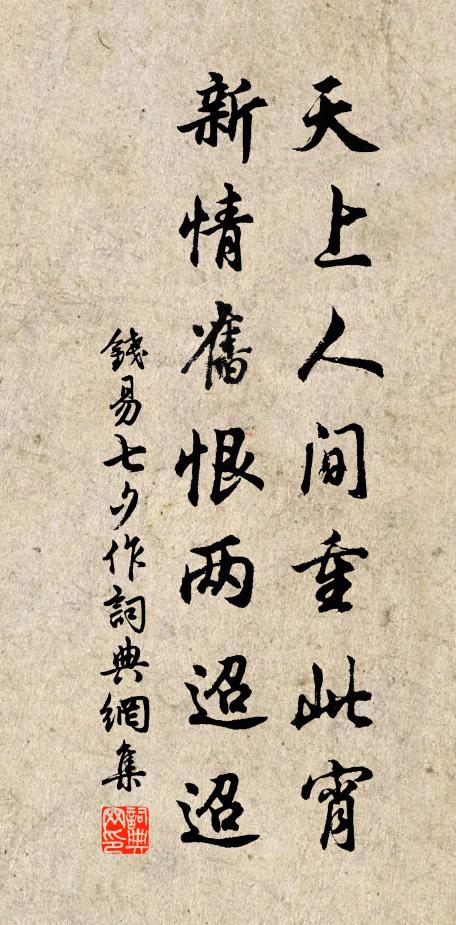 天上人间重此宵
新情舊恨两迢迢
錢易七夕作詞典網集
詞典网印